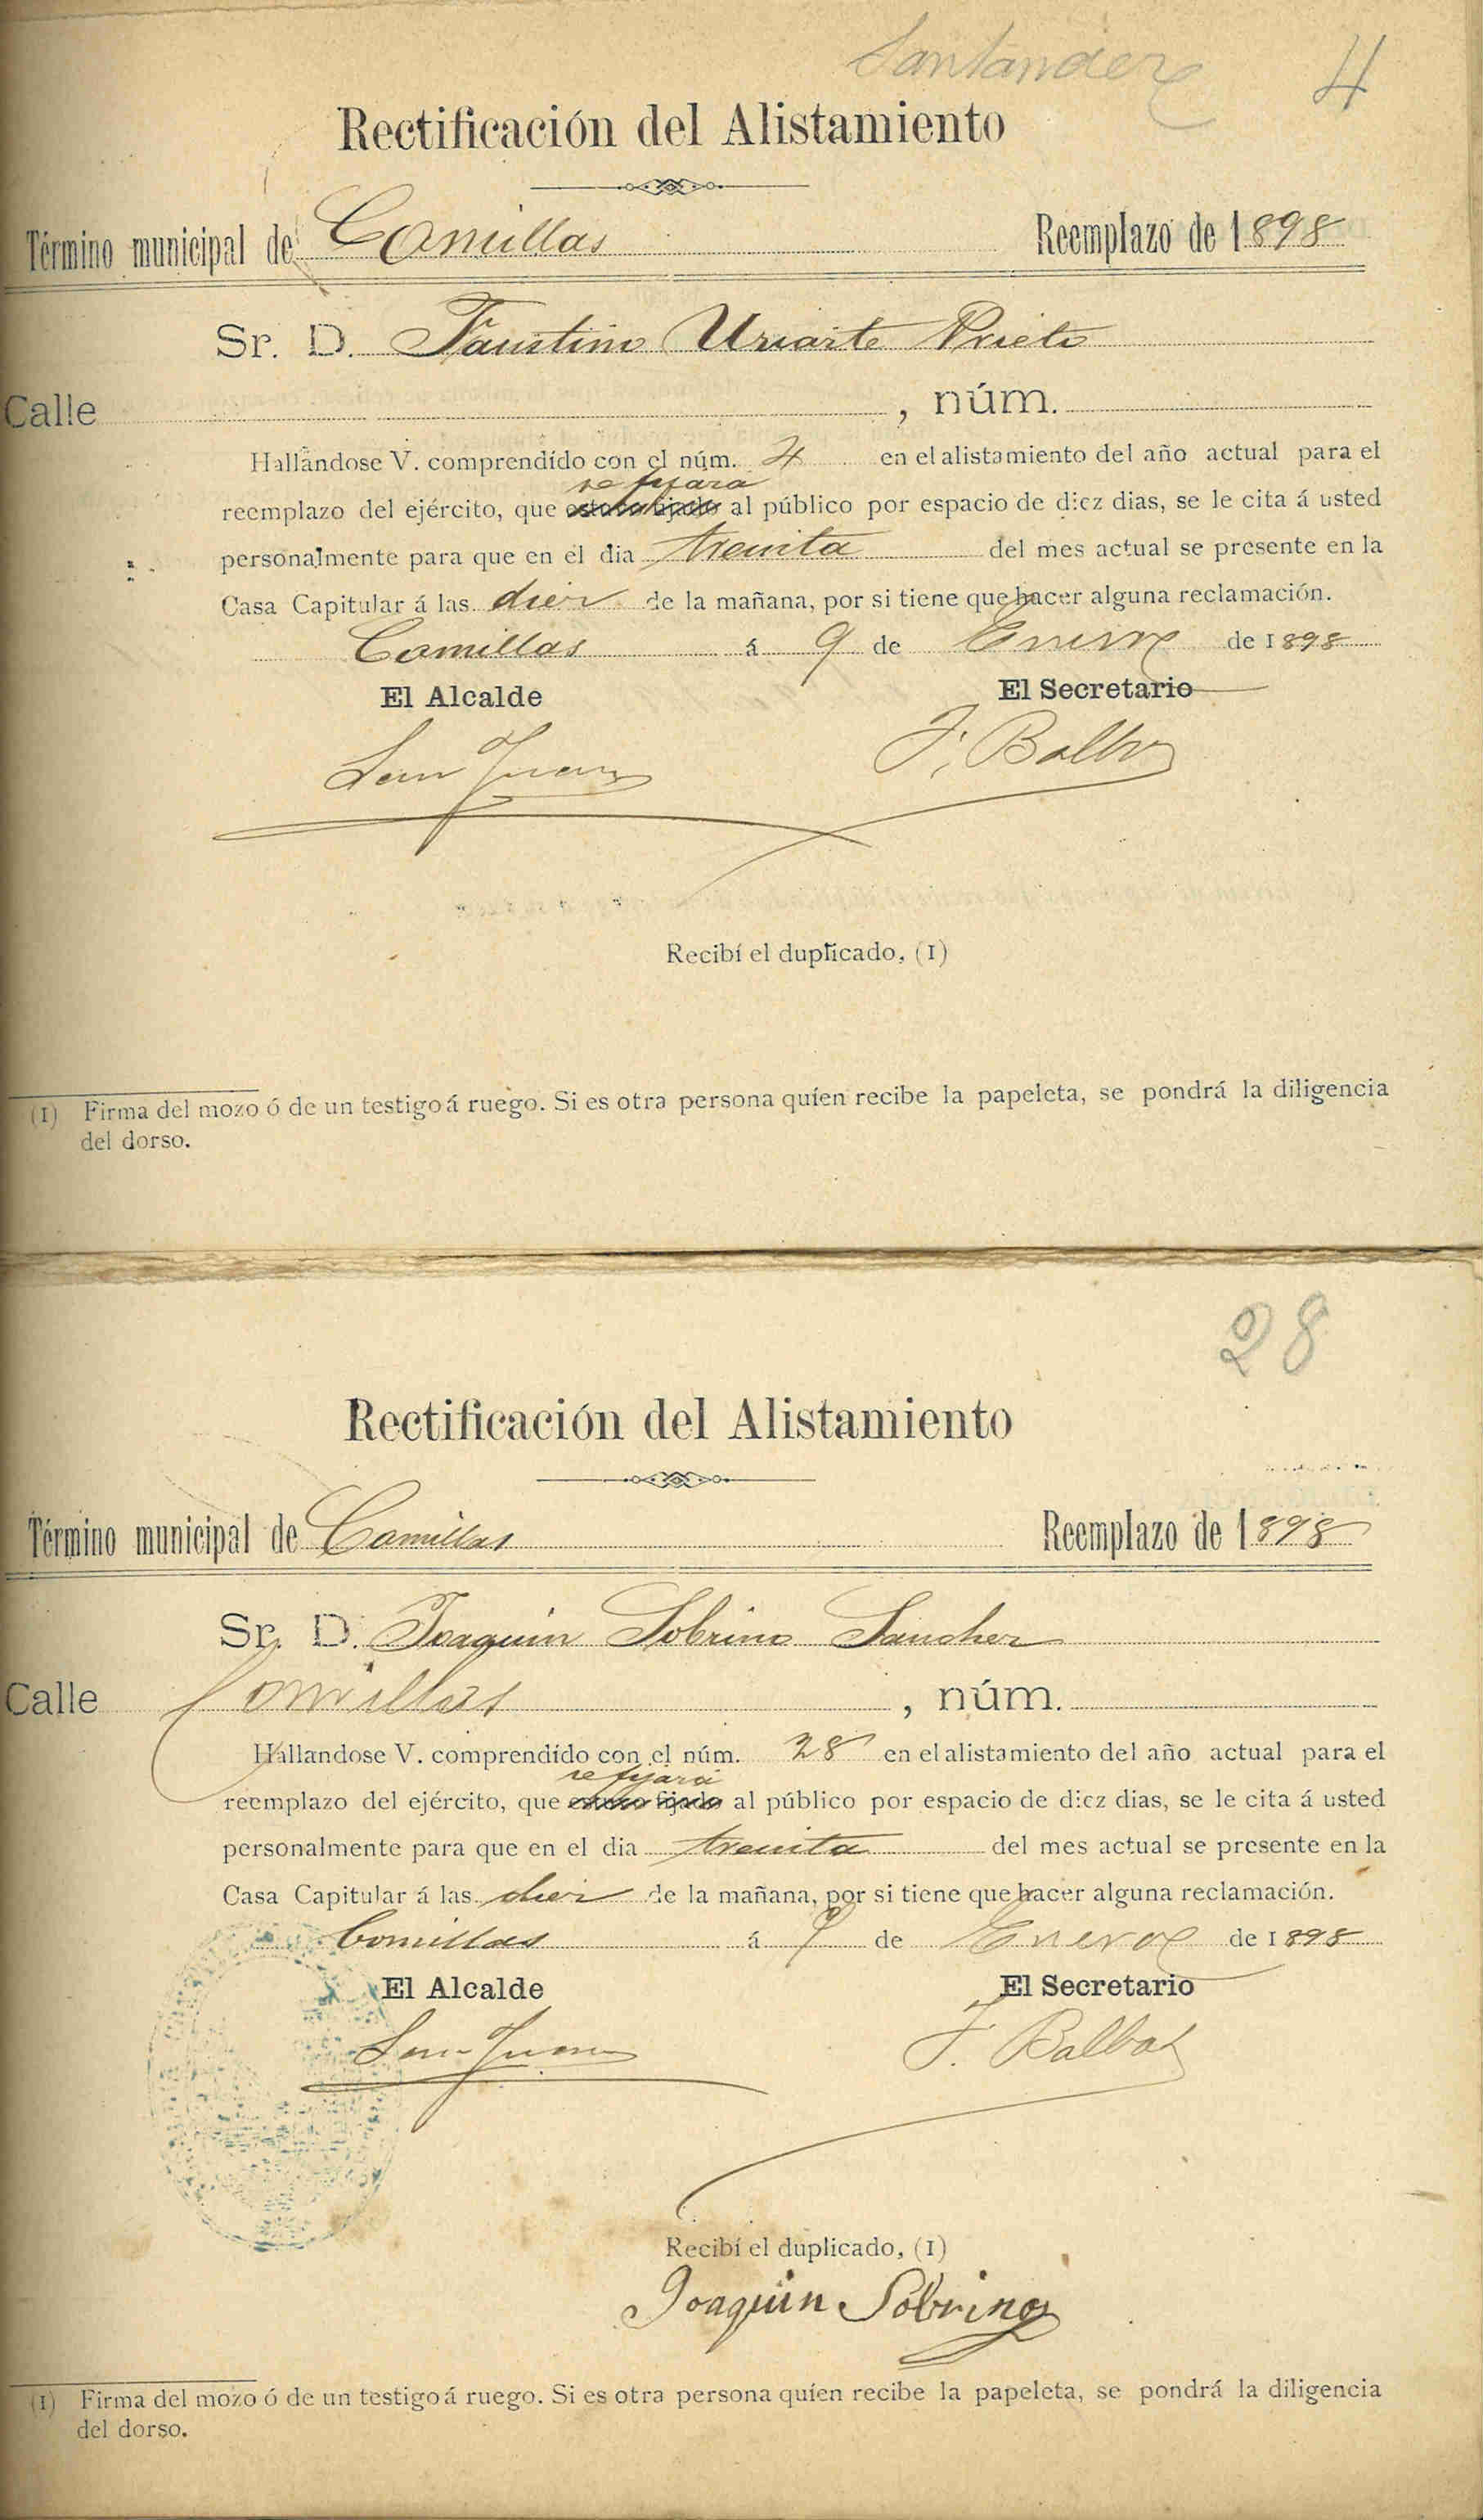 Santander 4
Rectificación del Alistamiento
Término municipal de Comillas Reemplazo de 1898
Sr. D. Faustino Uriarte Prieto
Calle , núm.
Hallándose V. comprendído con el núm. 4 en el alistamiento del año actual para el
se fijara
reemplazo del ejército, que al público por espacio de diez dias, se le cita á usted
personalmente para que en el dia treinta del mes actual se presente en la
Casa Capitular á las diez de la mañana, por si tiene que hacer alguna reclamación.
Comillas á 9 de Enero de 1898
El Alcalde El Secretario
San Juan F. Balbas
Recibí el duplicado, (1)
(1) Firma del mozo ó de un testigo á ruego. Si es otra persona quíen recibe la papeleta, se pondrá la diligencia
del dorso.
28
Rectificación del Alistamiento
Término municipal de Comillas Reemplazo de 1898
Sr. D. Joaquin Sobrino Sanchez
Calle Comillas , núm.
Hallandose V. comprendído con el núm. 28 en el alistamiento del año actual para el
se fijará
reemplazo del ejército, que al público por espacio de diez dias, se le cita á usted
personalmente para que en el dia treinta del mes actual se presente en la
Casa Capitular á las diez de la mañana, por si tiene que hacer alguna reclamación.
Comillas á 9 de Enero de 1898
El Alcalde El Secretario
San Juan F. Balbas
Recibí el duplicado, (1)
Joaquin Sobrino
(1) Firma del mozo ó de un testigo á ruego. Si es otra persona quíen recibe la papeleta, se pondrá la diligencia
del dorso.